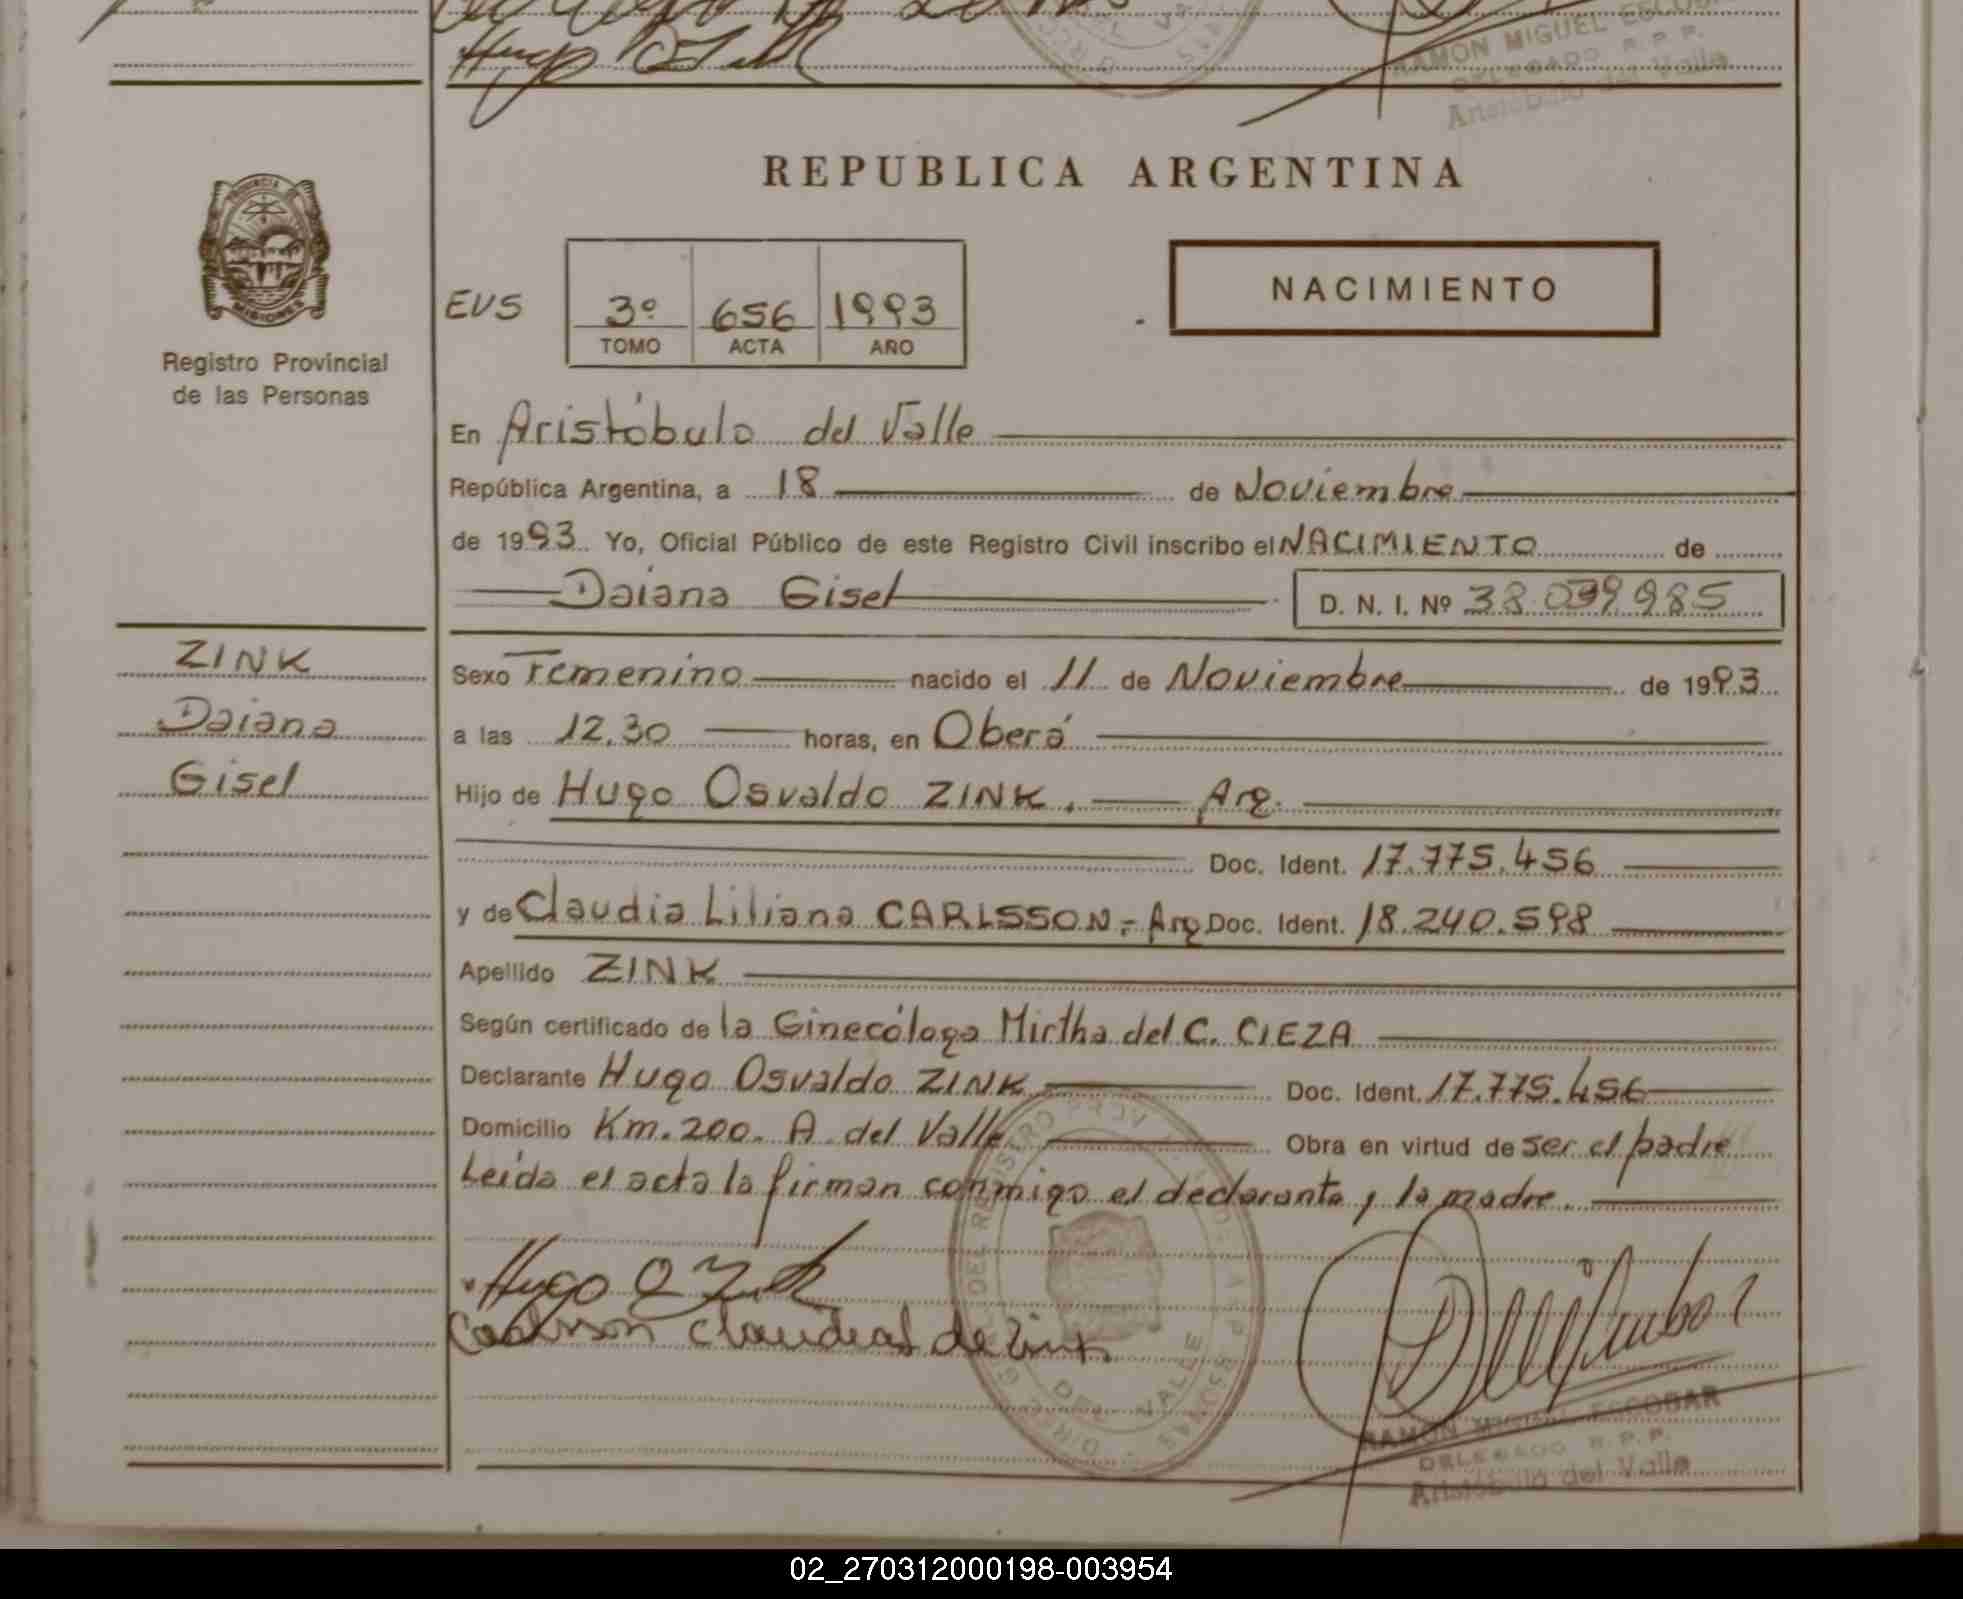 Hugo O Zink
RAMON MIGUEL ESCOBAR
DELEGADO R. P. P.
Aristóbulo del Valle
PROVINCIA DE
MISIONES
Registro Provincial
de las Personas
REPUBLICA ARGENTINA
EVS 3º 656 1993
TOMO ACTA AÑO
NACIMIENTO
En Aristóbulo del Valle
República Argentina, a 18 de Noviembre
de 1993. Yo, Oficial Público de este Registro Civil inscribo el NACIMIENTO de
Daiana Gisel D. N. I. Nº 38.039.985
ZINK
Daiana
Gisel
Sexo Femenino nacido el 11 de Noviembre de 1993
a las 12.30 horas, en Oberá
Hijo de Hugo Osvaldo ZINK. Arg.
Doc. Ident. 17.775.456
y de Claudia Liliana CARLSSON.- Arg Doc. Ident. 18.240.598
Apellido ZINK
Según certificado de la Ginecóloga Mirtha del C. CIEZA
Declarante Hugo Osvaldo ZINK Doc. Ident. 17.775.456
Domicilio Km. 200. A. del Valle Obra en virtud de ser el padre
Leída el acta la firman conmigo el declarante y la madre.
Hugo O Zink
Carlsson Claudia L de Zink
DEL VALLE
RAMON MIGUEL ESCOBAR
DELEGADO R. P. P.
Aristóbulo del Valle
02_270312000198-003954